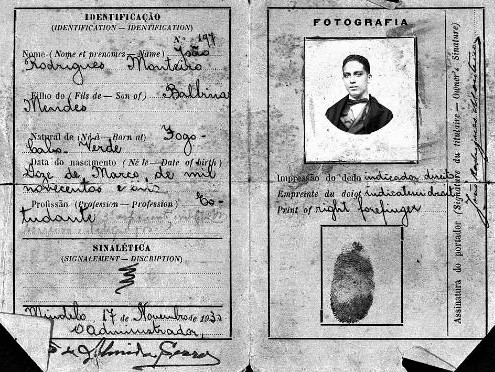 IDENTIFICAÇÃO
(IDENTIFICATION — IDENTIFICATION)
N.º 197
Nome (Nome et prenomes — Name) João
Rodrigues Monteiro
Filho do (Fils de — Son of) Balbina
Mendes
Natural de (Né à — Born at) Fogo-
Cabo-Verde
Data do nascimento (Né le — Date of birth)
Doze de Março de mil
novecentos e
Profissão (Profession — Profession) Es-
tudante
SINALÉTICA
(SIGNALEMENT — DISCRIPTION)
Mindelo, 17 de Novembro de 193
O Administrador,
FOTOGRAFIA
Impressão do dedo indicador direito
Empreinte du doigt indicateur droit
Print of right forefinger
Assinatura do portador (Signature du titulaire — Owner's Sinature)
João Rodrigues Monteiro